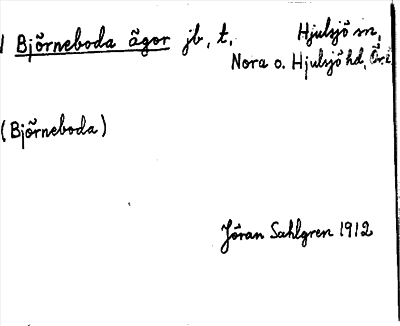 Björneboda ägor jb, t, Hjulsjö sn,
Nora o. Hjulsjö hd, Ör.
(Björneboda)
Jöran Sahlgren 1912